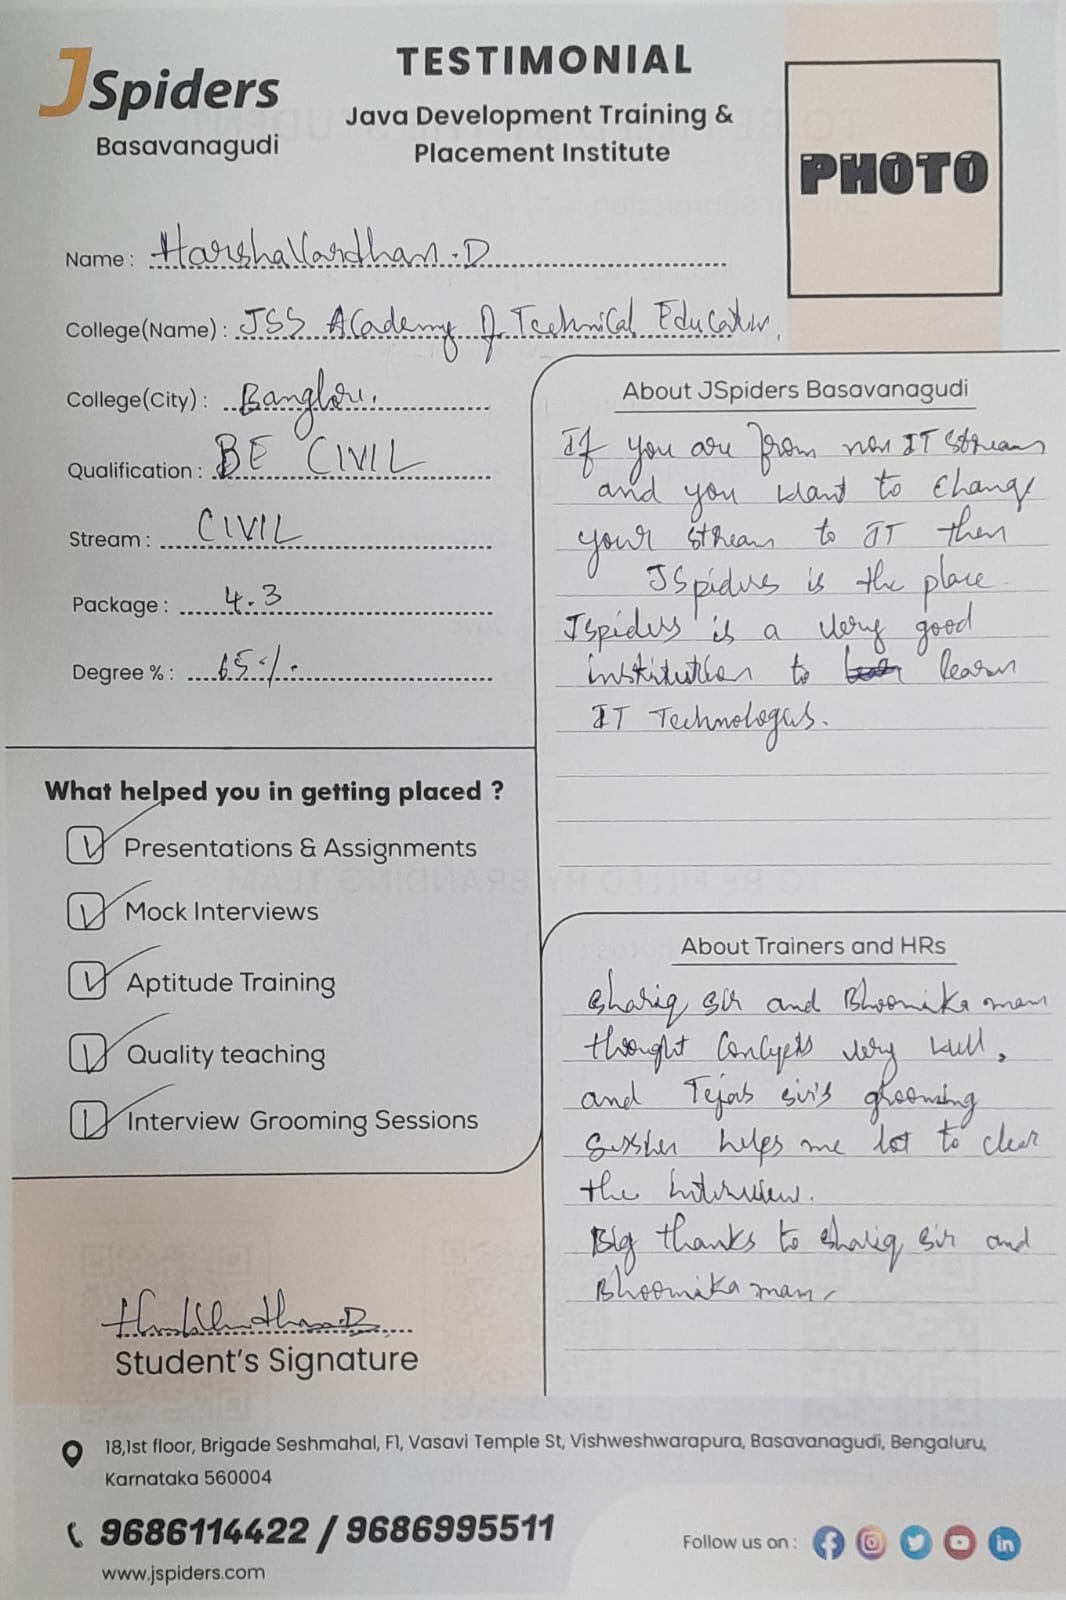 JSpiders
Basavanagudi
TESTIMONIAL
Java Development Training &
Placement Institute
PHOTO
Name : HarshaVardhan.D
College(Name) : JSS Academy of Technical Education,
College(City) : Banglore.
Qualification : BE CIVIL
Stream : CIVIL
Package : 4.3
Degree % : 65%
About JSpiders Basavanagudi
If you are from non IT stream
and you want to change
your stream to IT then
JSpiders is the place.
Jspiders is a very good
institution to learn
IT Technologes.
What helped you in getting placed ?
Presentations & Assignments
Mock Interviews
Aptitude Training
Quality teaching
Interview Grooming Sessions
About Trainers and HRs
Shariq Sir and Bhoomika mam
thought Concepts very well,
and Tejas sir's grooming
helps me lot to clear
the interview.
Big thanks to Shariq Sir and
Bhoomika mam.
HarshaVardhan.D
Student's Signature
18,1st floor, Brigade Seshmahal, F1, Vasavi Temple St, Vishweshwarapura, Basavanagudi, Bengaluru,
Karnataka 560004
9686114422 / 9686995511
www.jspiders.com
Follow us on :